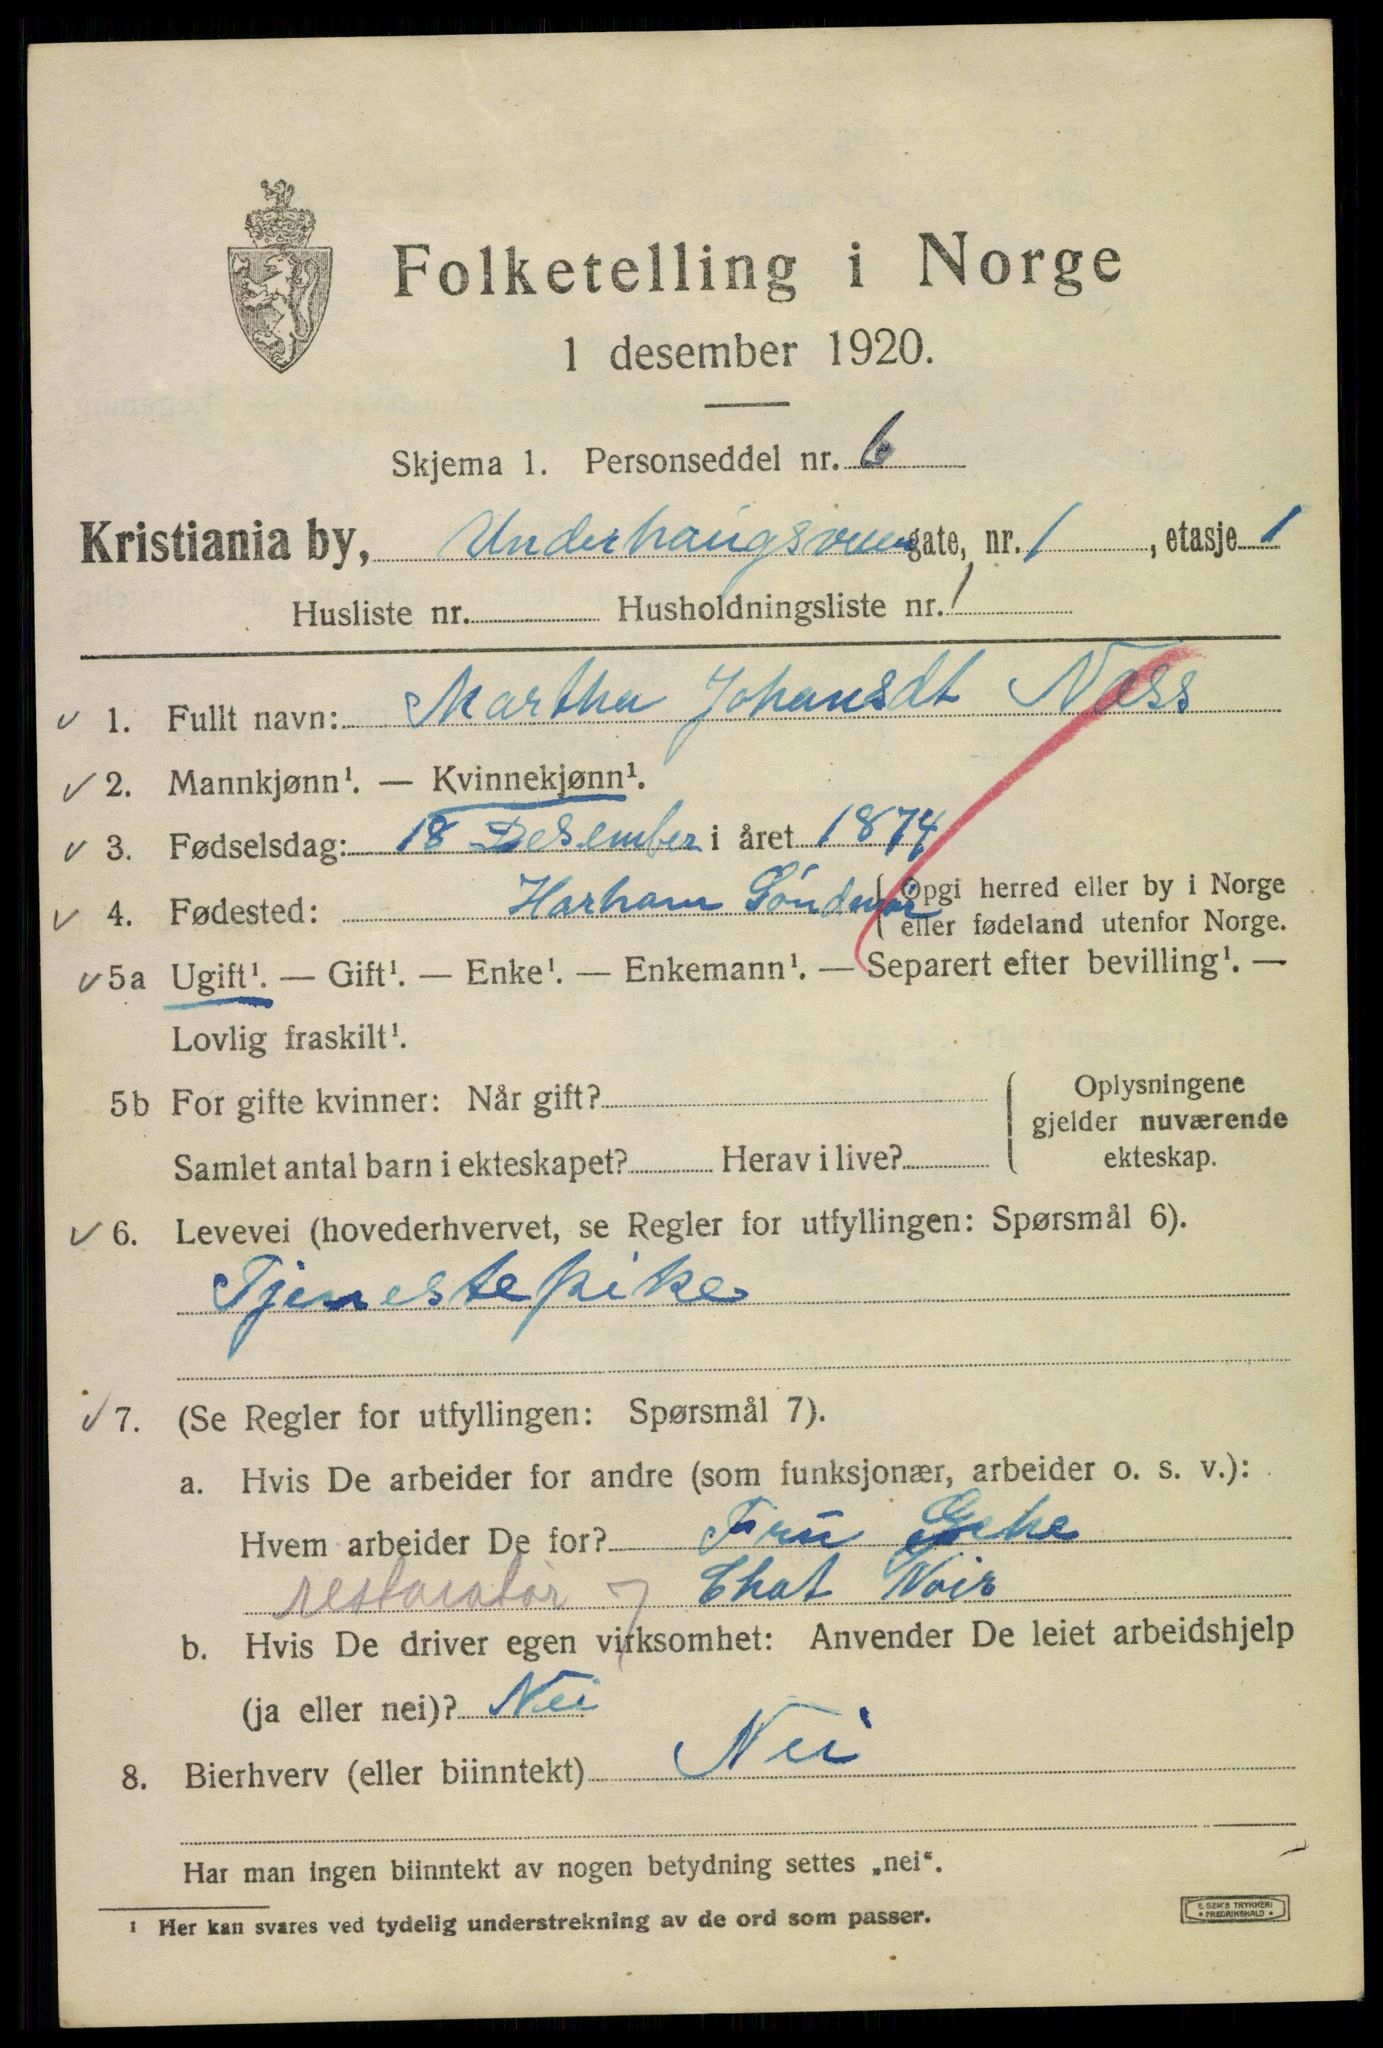 Folketelling i Norge
1 desember 1920.
Skjema 1. Personseddel nr. 6
Kristiania by, Underhaugsveien gate, nr. 1, etasje 1
Husliste nr. Husholdningsliste nr. 1
✓ 1. Fullt navn: Martha Johansdt Næss
✓ 2. Mannkjønn¹. — Kvinnekjønn¹.
✓ 3. Fødselsdag: 18 Desember i året 1874
✓ 4. Fødested: Harham Söndmör { Opgi herred eller by i Norge
eller fødeland utenfor Norge.
✓ 5a Ugift¹. — Gift¹. — Enke¹. — Enkemann¹. — Separert efter bevilling¹. —
Lovlig fraskilt¹.
5b For gifte kvinner: Når gift? { Oplysningene
gjelder nuværende
Samlet antal barn i ekteskapet? Herav i live? ekteskap.
✓ 6. Levevei (hovederhvervet, se Regler for utfyllingen: Spørsmål 6).
Tjenestepike
✓ 7. (Se Regler for utfyllingen: Spørsmål 7).
a. Hvis De arbeider for andre (som funksjonær, arbeider o. s. v.):
Hvem arbeider De for? Fru
restoratør Chat Noir
b. Hvis De driver egen virksomhet: Anvender De leiet arbeidshjelp
(ja eller nei)? Nei
8. Bierhverv (eller biinntekt) Nei
Har man ingen biinntekt av nogen betydning settes „nei“.
¹ Her kan svares ved tydelig understrekning av de ord som passer.
E. SEM'S TRYKKERI
• FREDRIKSHALD •